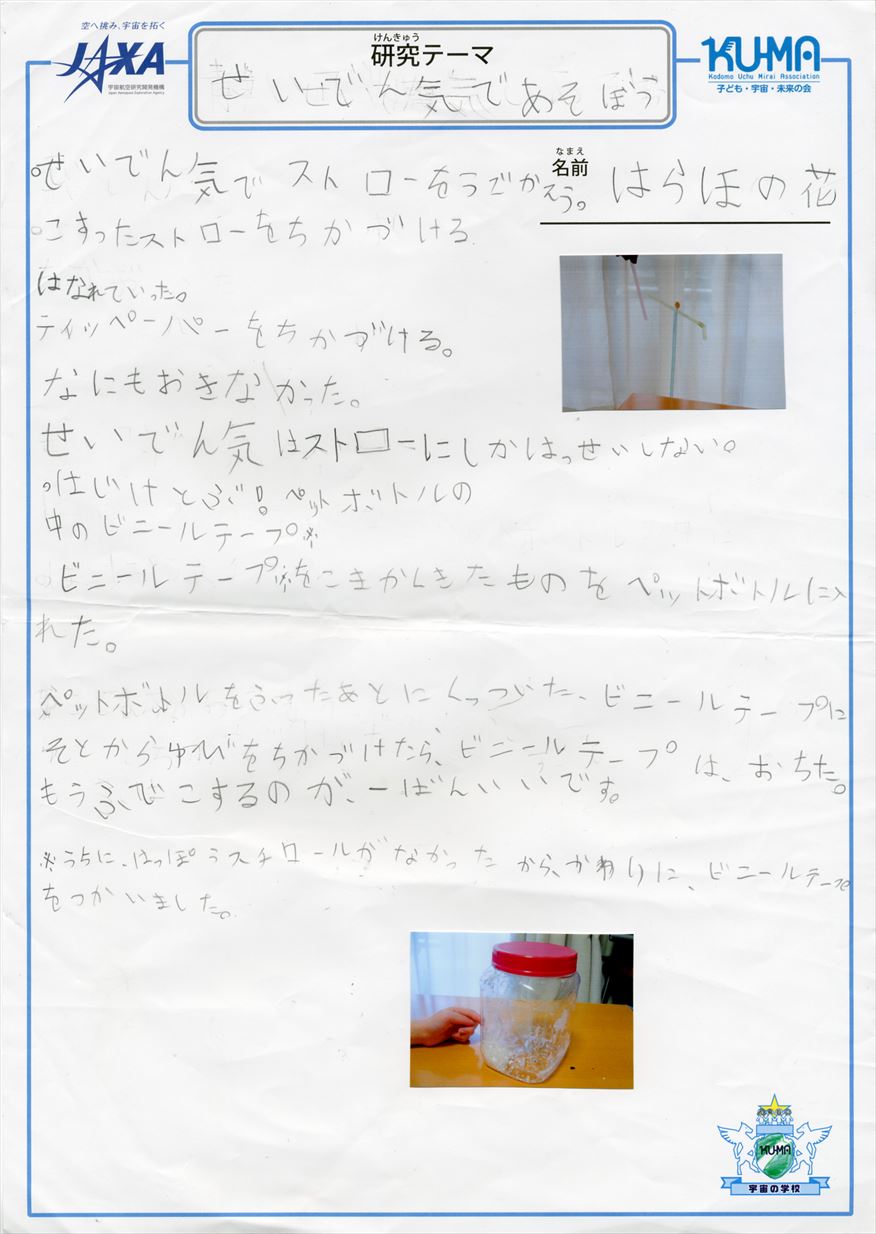 空へ挑み、宇宙を拓く
JAXA
宇宙航空研究開発機構
Japan Aerospace Exploration Agency
けんきゅう
研究テーマ
せいでん気であそぼう
KU-MA
Kodomo Uchu Mirai Association
子ども・宇宙・未来の会
なまえ
名前 はらほの花
○せいでん気でストローをうごかそう。
○こすったストローをちかづける
はなれていった。
ティッペーパーをちかずける。
なにもおきなかった。
せいでん気はストローにしかはっせいしない。
○はじけとぶ!ペットボトルの
中のビニールテープ※
○ビニールテープ※をこまかくきたものをペットボトルに入
れた。
ペットボトルをふったあとにくっつづいた、ビニールテープに
そとからゆびをちかづけたら、ビニールテープは、おちた。
もうふでこするのが、一ばんいいです。
※うちに、はっぽうスチロールがなかったから、かわりに、ビニールテープ
をつかいました。
KU-MA
宇宙の学校